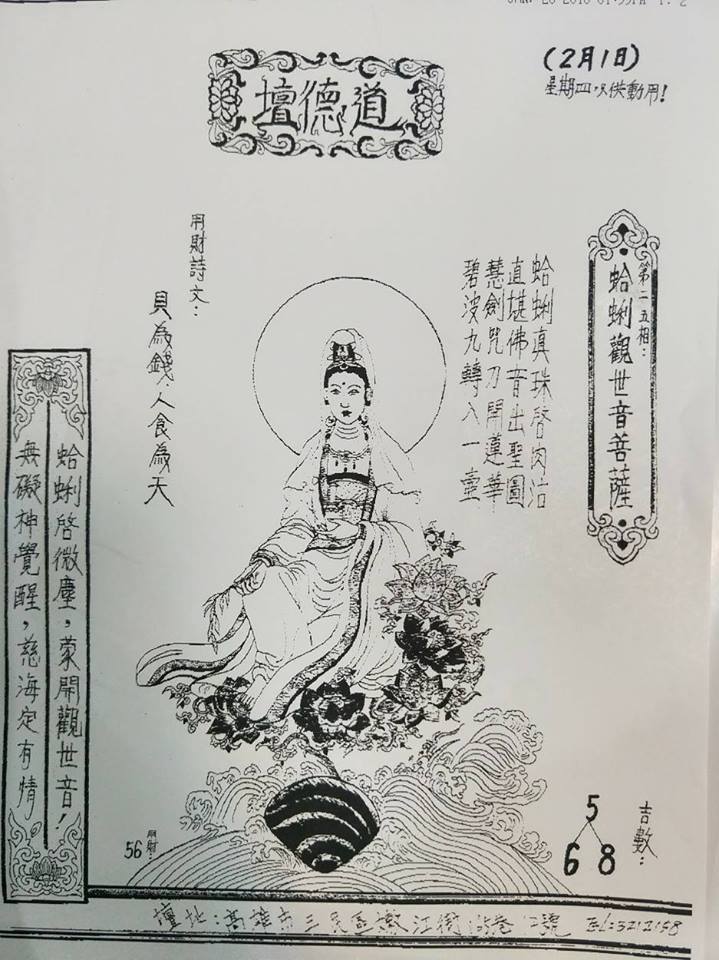 (2月1日)
星期四以供動用!
道德壇
第二五相:
蛤蜊觀世音菩薩
蛤蜊真珠啓肉沽
直堪佛音出聖圖
慧劍咒刀開蓮華
碧波九轉入一壺
用財詩文:
貝為錢,人食為天
蛤蜊啓微塵,蒙開觀世音!
無礙神覺醒,慈海定有情
吉數:
5
6 8
用財:
56
壇址:高雄市三民區嫩江街 巷 號